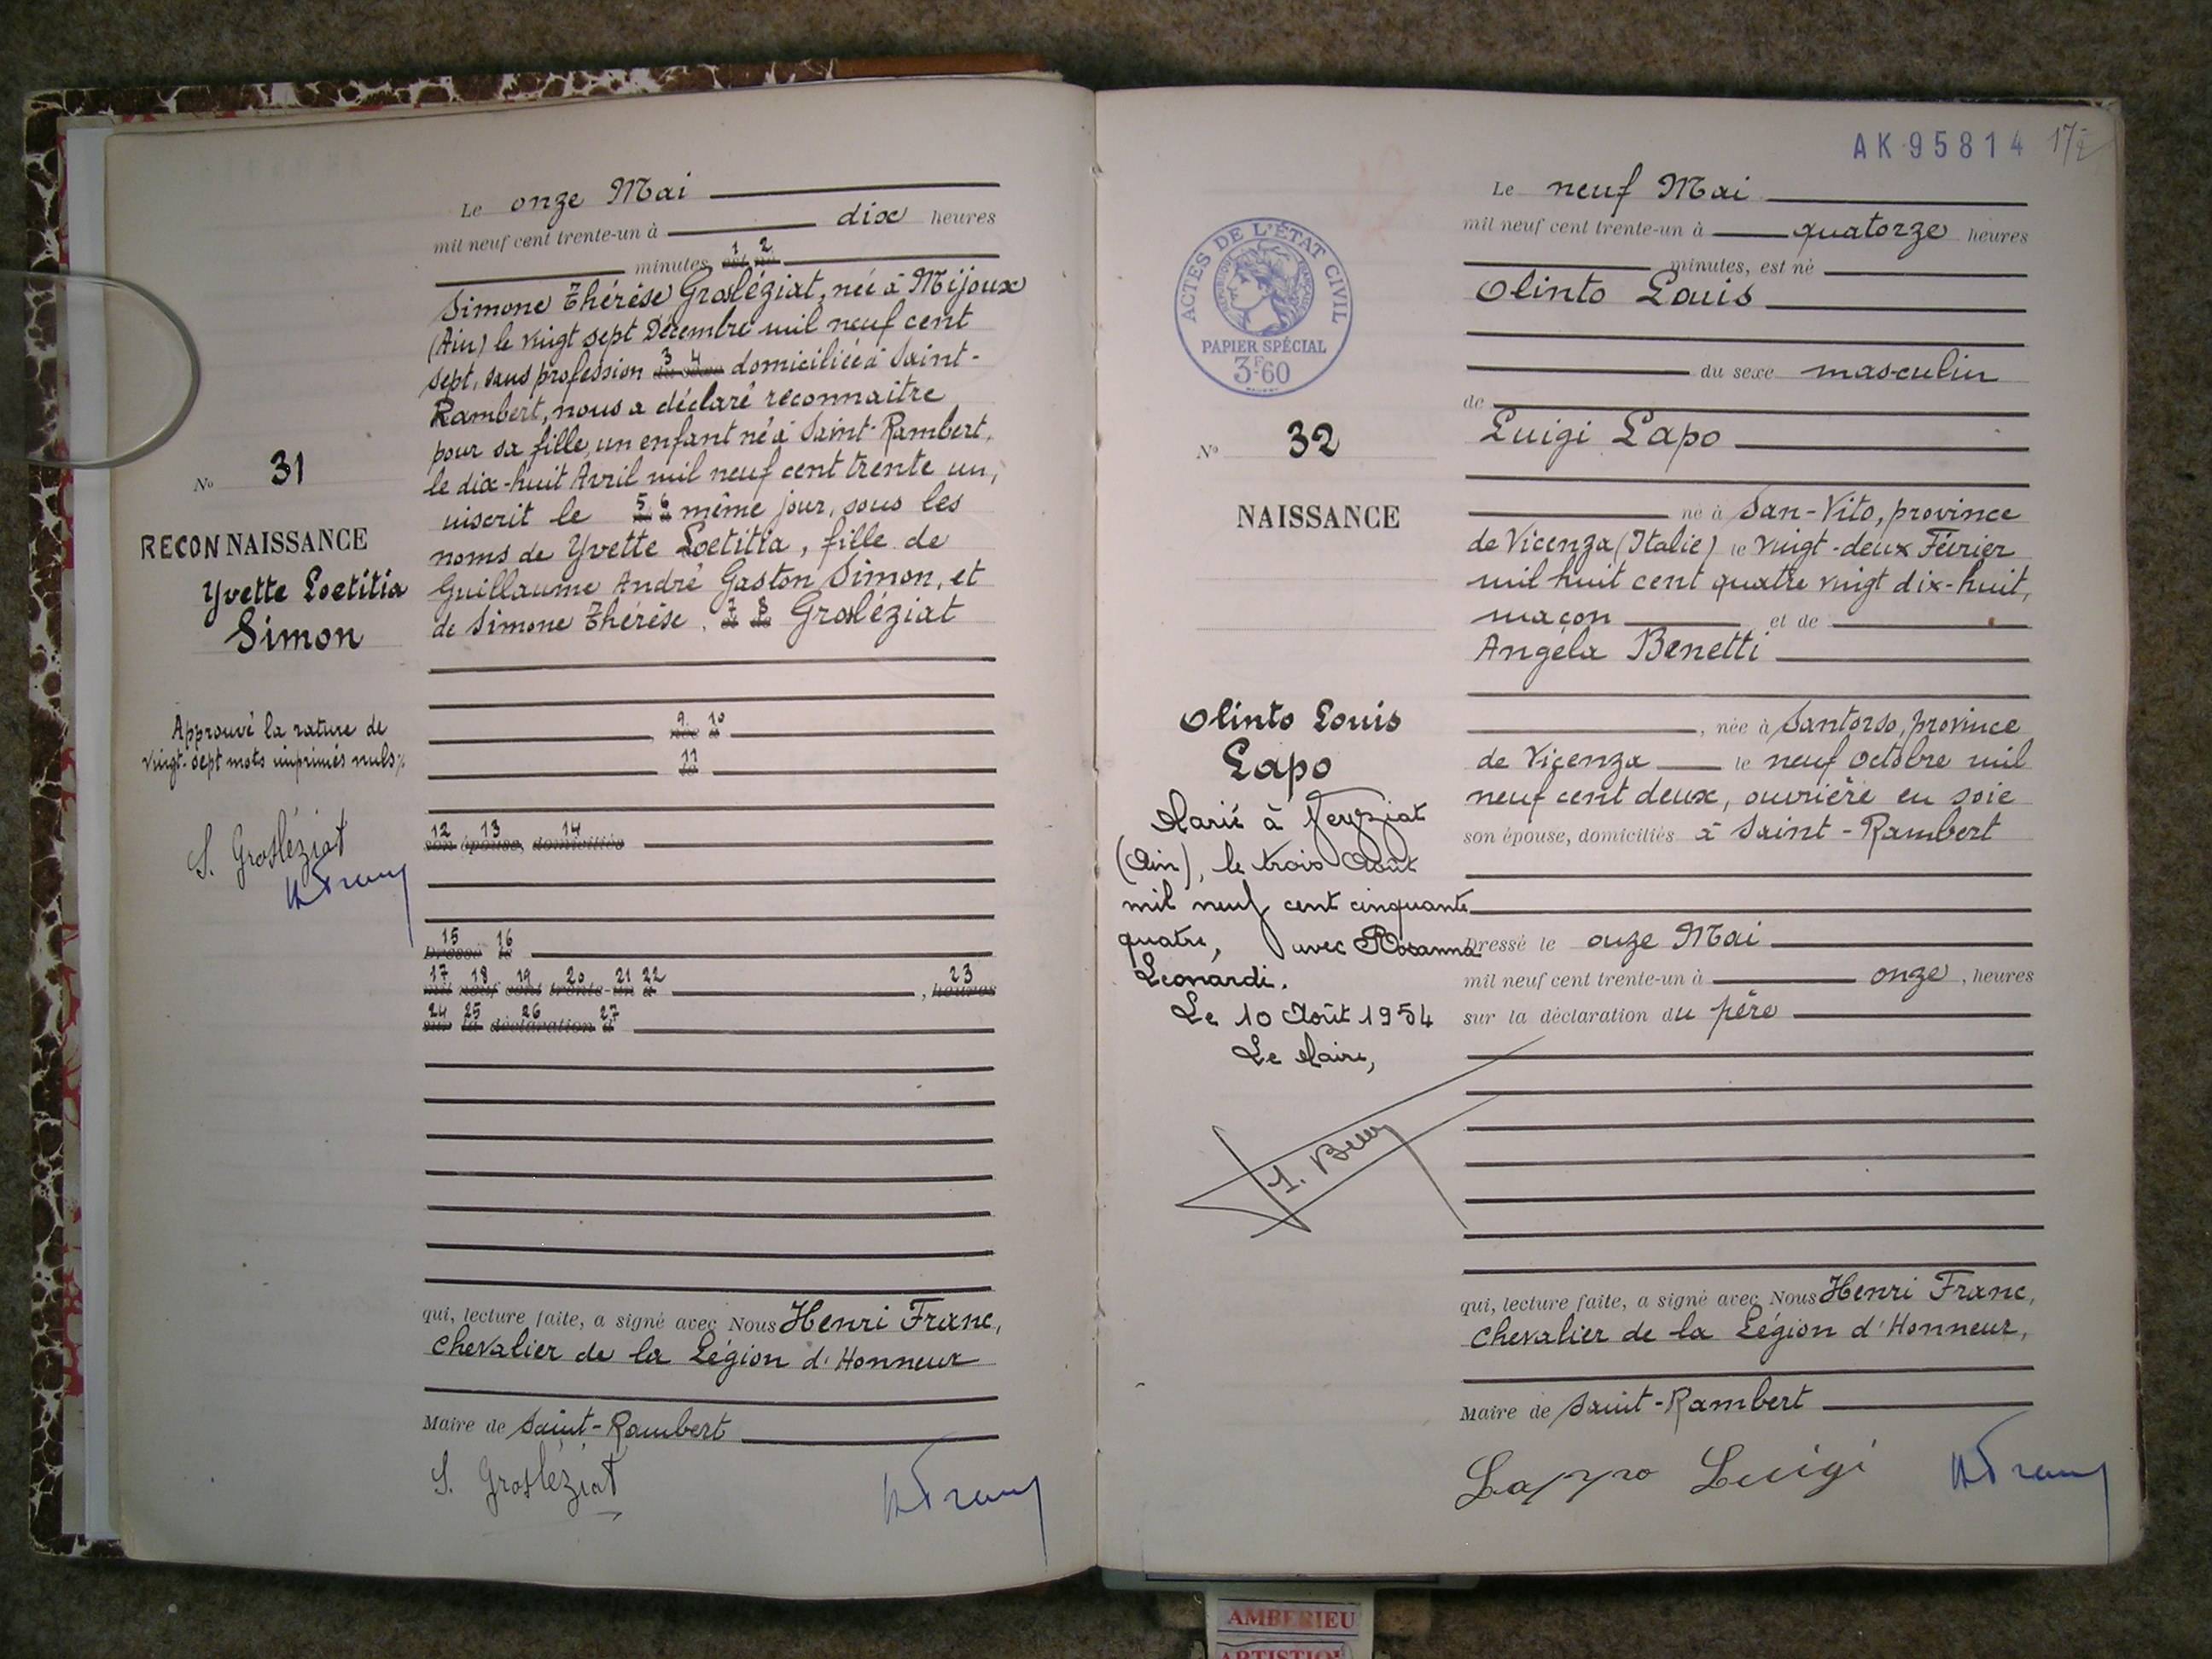 Le onze Mai
mil neuf cent trente-un à dix heures
minutes est né 1 2
Simone Thérèse Grosléziat, née à Mijoux
(Ain) le vingt sept Décembre mil neuf cent
sept, sans profession 3 4 domiciliée à Saint-
Rambert, nous a déclaré reconnaitre
pour sa fille, un enfant né à Saint-Rambert,
le dix-huit Avril mil neuf cent trente un,
inscrit le 5 6 même jour, sous les
noms de Yvette Loetitia, fille de
Guillaume André Gaston Simon, et
de Simone Thérèse. 7 8 Grosléziat
9 10
née à
11
le
12 13 14
son épouse, domiciliés
15 16
Dressé le
17 18 19 20 21 22 23
mil neuf cent trente-un à , heures
24 25 26 27
sur la déclaration d
qui, lecture faite, a signé avec Nous Henri Franc,
Chevalier de la Légion d'Honneur
Maire de Saint-Rambert
S. Grosléziat
No 31
RECONNAISSANCE
Yvette Loetitia
Simon
Approuvé la rature de
vingt-sept mots imprimés nuls
S. Grosléziat
AK 95814
ACTES DE L'ÉTAT CIVIL
RÉPUBLIQUE FRANÇAISE
PAPIER SPÉCIAL
3F60
No 32
NAISSANCE
Olinto Louis
Lapo
Marié à Veyziat
(Ain), le trois Août
mil neuf cent cinquante
quatre, avec Rosanna
Leonardi.
Le 10 Août 1954
Le Maire,
Le neuf Mai
mil neuf cent trente-un à quatorze heures
minutes, est né
Olinto Louis
du sexe masculin
de
Luigi Lapo
né à San-Vito, province
de Vicenza (Italie) le vingt-deux Février
mil huit cent quatre vingt dix-huit,
maçon et de
Angela Benetti
, née à Santorso, province
de Vicenza le neuf Octobre mil
neuf cent deux, ouvrière en soie
son épouse, domiciliés à Saint-Rambert
Dressé le onze Mai
mil neuf cent trente-un à onze, heures
sur la déclaration du père
qui, lecture faite, a signé avec Nous Henri Franc,
Chevalier de la Légion d'Honneur,
Maire de Saint-Rambert
Lappo Luigi
AMBERIEU